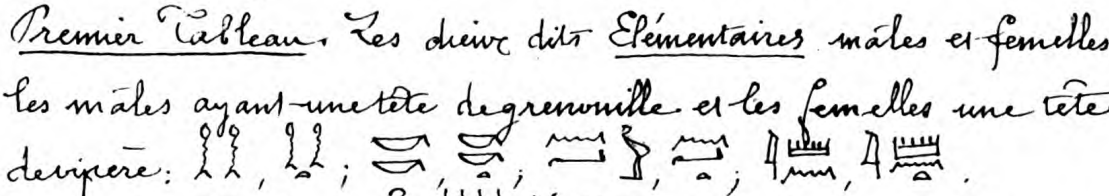 Premier Tableau. Les dieux dits Elémentaires mâles et femelles
les mâles ayant une tête de grenouille et les femelles une tête
de vipère: 𓎛𓎛, 𓎛𓎛𓏏; 𓎡𓎡, 𓎡𓎡𓏏; 𓇋𓏠𓈖, 𓇋𓏠𓈖𓏏.